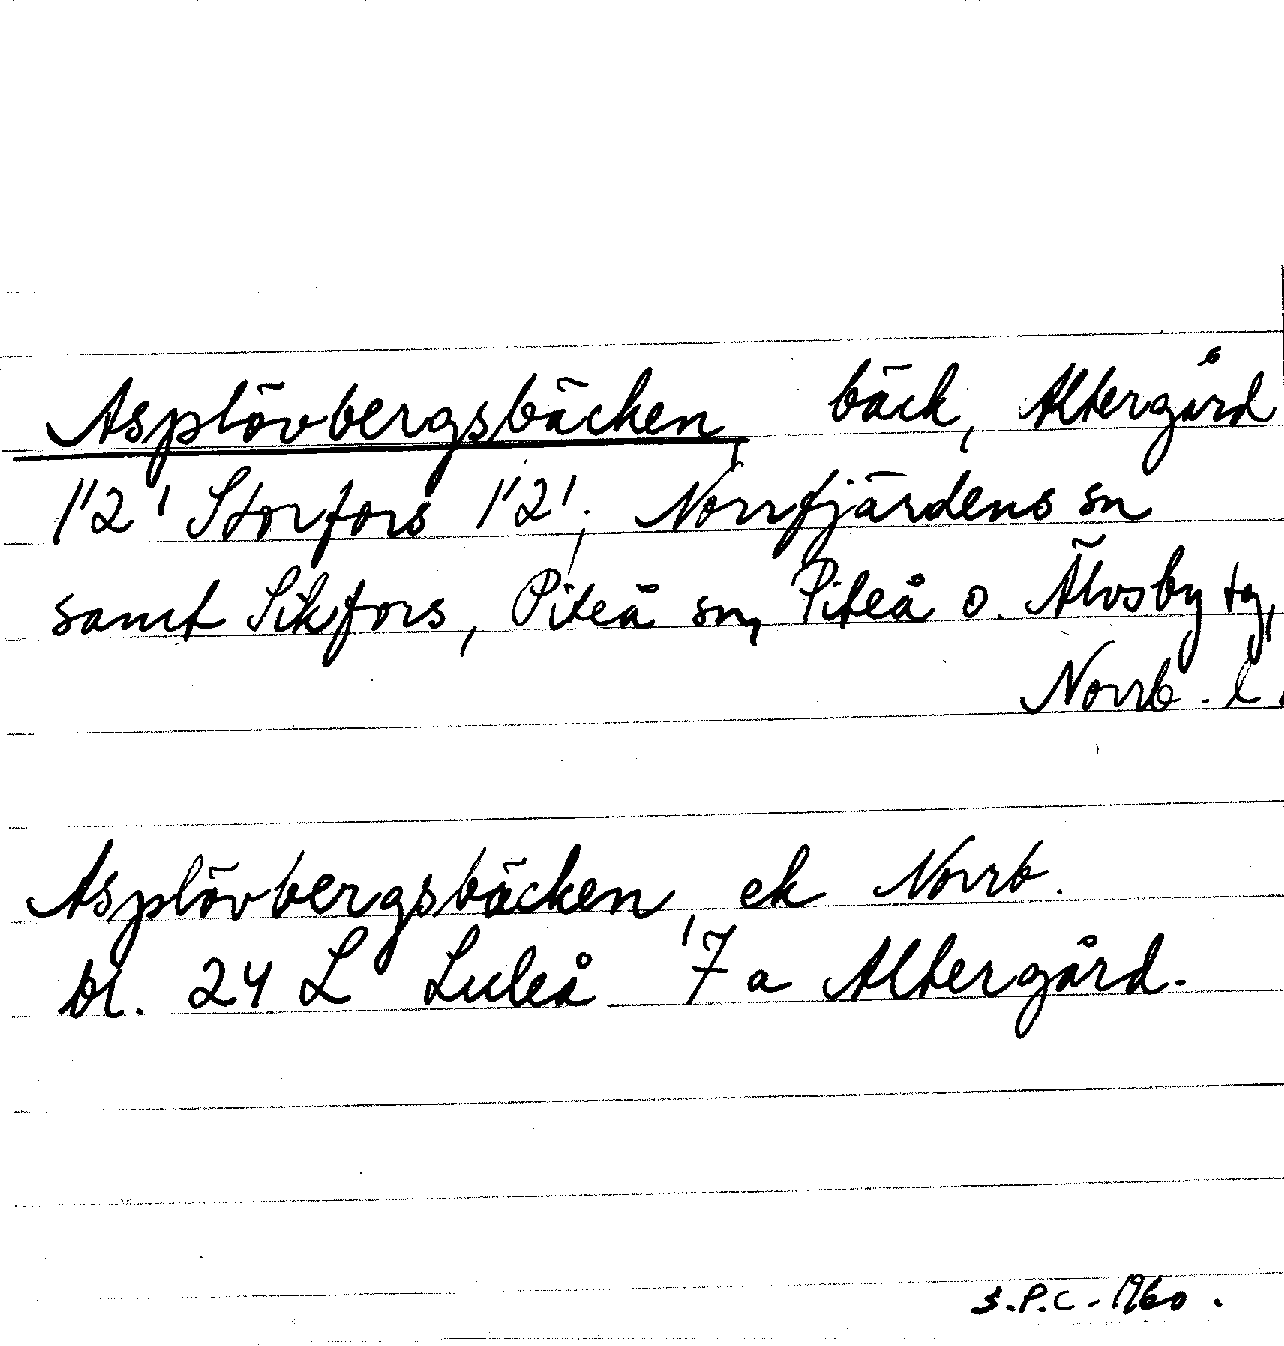 Asplövbergsbäcken, bäck, Altergård
1'2' Storfors 1'2'; Norrfjärdens sn
samt Sikfors, Piteå sn, Piteå o. Älvsby tg,
Norrb. l.
Asplövbergsbäcken, ek Norrb.
bl. 24 L Luleå 7a Altergård.
S.P.C. 1960.